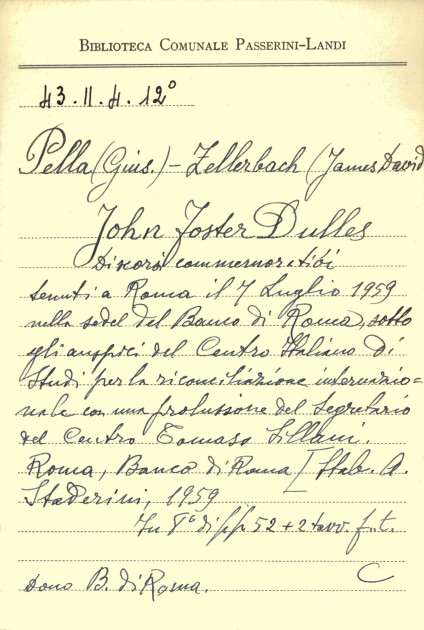 BIBLIOTECA COMUNALE PASSERINI-LANDI
43.II.4.12°
Pella (Gius.) - Zellerbach (James David
John Foster Dulles
Discorsi commemorativi
tenuti a Roma il 7 Luglio 1959
nella sede del Banco di Roma, sotto
gli auspici del Centro Italiano di
Studi per la riconciliazione internazio=
nale con una prolusione del Segretario
del Centro Tomaso Sillani.
Roma, Banco di Roma [Stab. A.
Staderini, 1959
In 8° di pp. 52 + 2 tavv. f. t.
C
Dono B. di Roma.